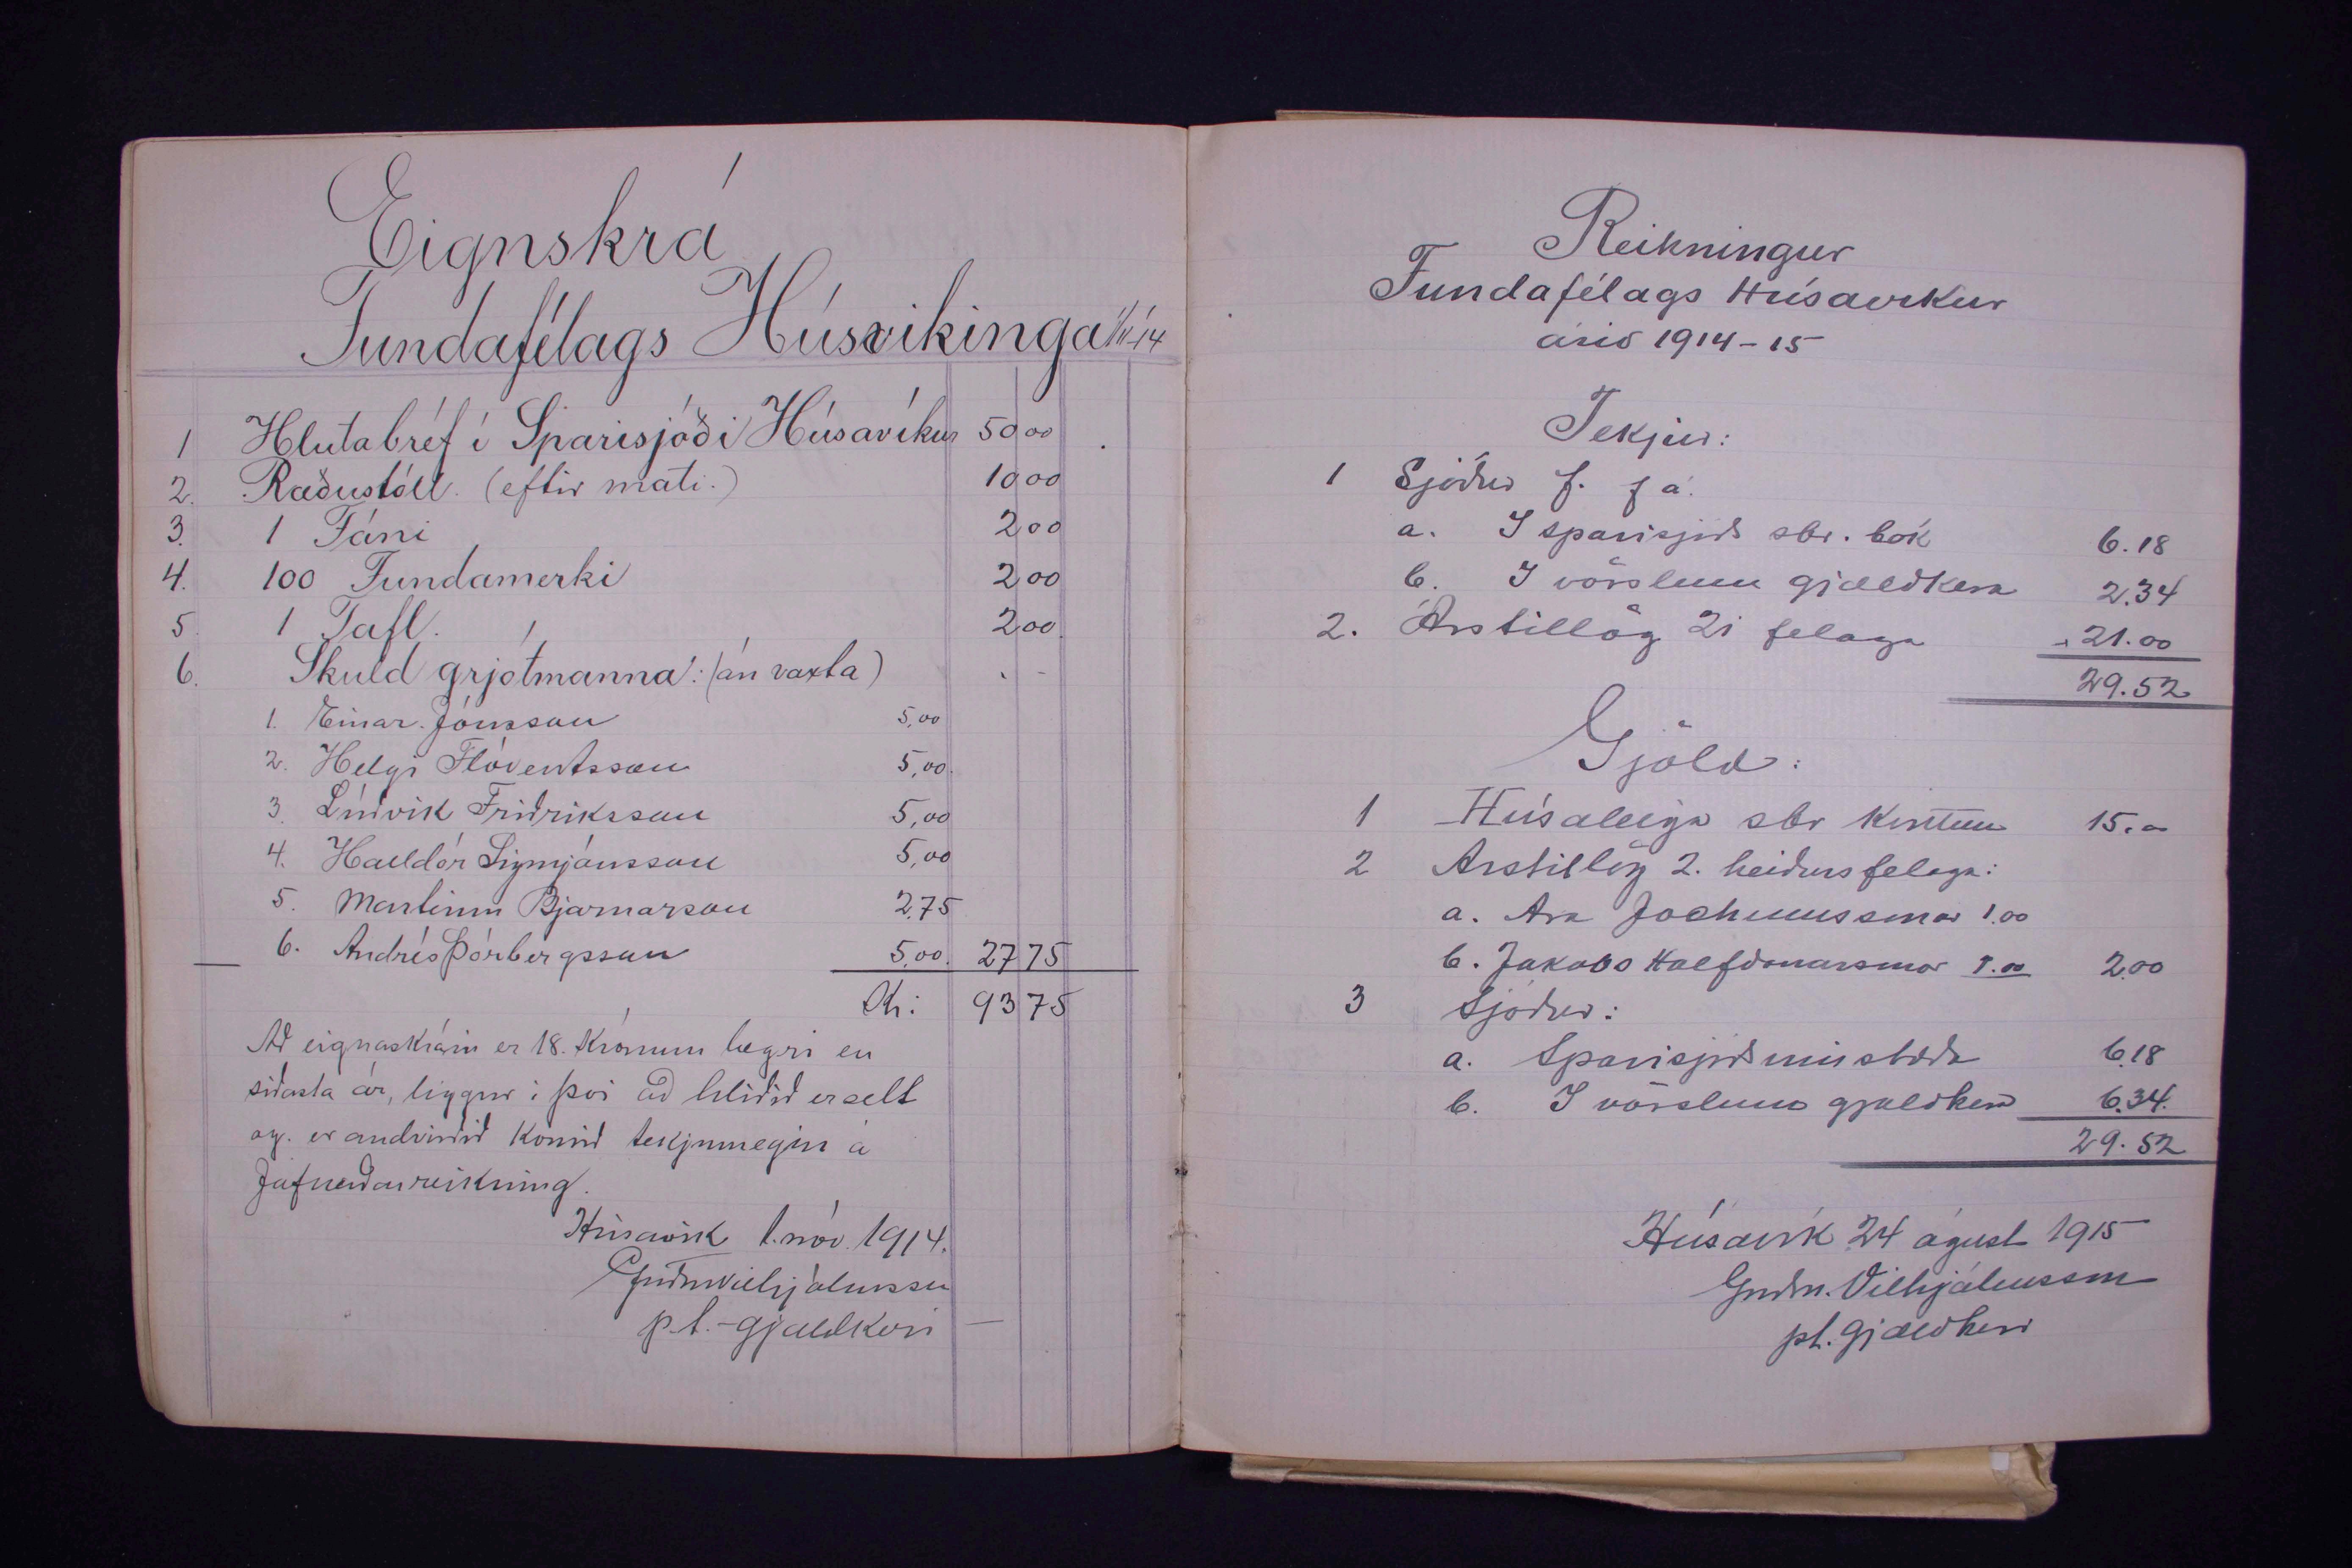 Eignskrá
Fundafélags Húsvikinga 1/11-14
1 Hlutabréf í Sparisjóði Húsavíkur 50 00
2. Ræðustóll. (eftir mati.) 10 00
3. 1 Fáni 2 00
4. 100 Fundamerki 2 00
5. 1 Tafl. 2 00
6. Skuld grjótmanna: (án vaxta)
1. Einar Jónsson 5,00
2. Helgi Flóventsson 5,00
3. Lúdvik Fridriksson 5,00
4. Halldór Sigurjónsson 5,00
5. Marteinn Bjarnarson 2.75
6. Andrés Þórbergsson 5,00. 27 75
Kr: 93 75
Ad eignaskráin er 18. Krónum lægri en
sidasta ár, liggur i því ad hlidid er selt
og er andvirdid Komid tekjumegin á
Jafnadarreikning.
Húsavík 1. nóv. 1914.
Gudm Vilhjálmsson
p.t. - gjaldkeri
Reikningur
Fundafélags Húsavíkur
árid 1914-15
Tekjur:
1 Sjódur f. f á.
a. I sparisjód sbr. bók 6.18
b. I vörslum gjaldkera 2.34
2. Árstillög 21 felaga 21.00
29.52
Gjöld:
1 Húsaleiga sbr kvittun 15.00
2 Arstillög 2. heidursfelaga:
a. Ara Jochumssonar 1.00
b. Jakobs Halfdanarsonar 1.00 2.00
3 Sjódur:
a. Sparisjóds innstæda 6.18
b. I vörslum gjaldkera 6.34.
29.52
Húsavík 24 ágúst 1915
Gudm. Vilhjálmsson
pt. gjaldkeri